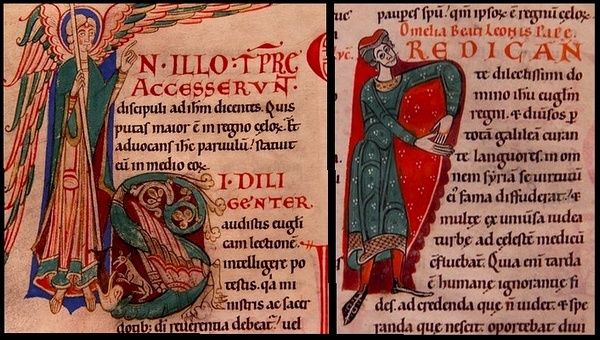 N. ILLO·T̄PRĒ
ACCESSERVN̄·
discipuli ad ih̄m dicentes. Quis
putas maior ē in regno çeloꝝ. Et
aduocans ihc̄ paruulū; statuit
eū in medio eoꝝ
I·DILI
GENTER·
audistis eugl̄i
cam lectionē.
intelligere po
testis. q̄a mi
nistris ac sacer
dotib; dī reuerentia debeat᷑/ uel
paupes spū! qm̄ ipsoꝝ ē regnū çeloꝝ
Omelia Beati Leonis Papę.
REDICAN̄
te dilectissimi do
mino ihū eugl̄m
regni. & diūsos ꝑ
totā galileā curan
te languores. in om
nem syriā se uirtutū
ei᾽ fama diffuderat! &
multę ex uniūsa iudea
turbę ad cęlestē medicū
c̄fluebant. Quia eni̅ tarda
ē humanę ignorantię fi
des. ad credenda que n̄ uidet! & spe
randa que nescit. oportebat diui